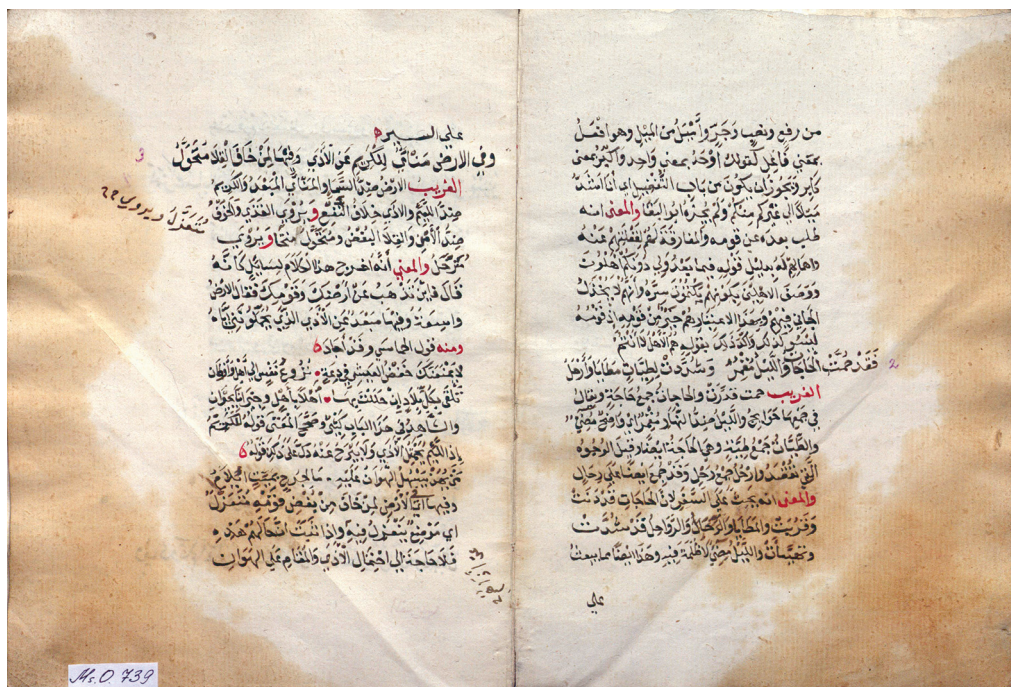 من رفع ونصب وجر وأميل من الميل وهو افعل
بمعنى فاعل كقولك اوحد بمعنى واحد واكبر بمعنى
كابر ويجوز ان يكون من باب التفضيل اي أنا اشد
ميلا الى غيركم منكم ولم يجزه ابو البقا والمعنى انه
طلب بعده عن قومه والمفارقة لهم لغفلتهم عنه
واهمالهم له بدليل قوله فيما بعد ولي دونكم اهلون
ووصف الاهلين بكونهم يكتمون سره وانهم لا يخذل
الجاني فيهم وبهذا الاعتبار هم خير من قومه إذ قومه
ليسوا كذلك واكد ذلك بقوله هم الاهل لا انتم
2 فقد حمت الحاجات والليل مقمر وشدت لطيات مطايا وأرحل
الغريب حمت قدرت والحاجات جمع حاجة ويقال
في جمعها حوايج والليل ضد النهار مقمر اي واضح مضيء
والطيات جمع طية وهي الحاجة ايضا وقيل الوجوه
التي تقصد وارحل جمع رحل وقد جمع ايضا على رحال
والمعنى انه يحث على السفر لان الحاجات قد دنت
وقربت والمطايا والرحال والرواحل قد شدت
وتهيأت والليل مضي لا ظلمة فيه وهذا ايضا مما يبعث
على
على السير ه
3 وفي الارض منأى للكريم عن الأذى وفيها لمن خاف القلا متحول
الغريب الارض ضد السما والمنأى المبعد والكريم
ضد اللئيم والاذى خلاف النفع ويروى القذى والخوف
ضد الأمن والقلا البغض ومتحول منحا ويروى
مترحل والمعنى أنه اخرج هذا الكلام لسايل كأنه
قال فاين تذهب عن أرضك وقومك فقال الارض
واسعة وفيها مبعد عن الأذى الذي
ومنه قول الحماسي وقد أجاد ه
لا يمنعنك خفض العيش في دعة نزوع نفس إلى أهل وأوطان
تلقى بكل بلاد إن حللت بها أهلا بأهل وجيرانا بجيران
والشاهد في هذا الباب كثير وصحح المعنى قوله للكريم
إذ اللئيم يحتمل الأذى ولا يبرح عنه دل على ذلك قوله ه
من يهن يسهل الهوان عليه ما لجرح بميت ايلام
وفيها اي في الأرض لمن خاف من بغض قومه متعزل
اي موضع يتعزل فيه واذا اثبت انتحالهم هذه
فلا حاجة إلى احتمال الأذى والمقام على الهوان
متعزل ويروى
Ms. O. 739